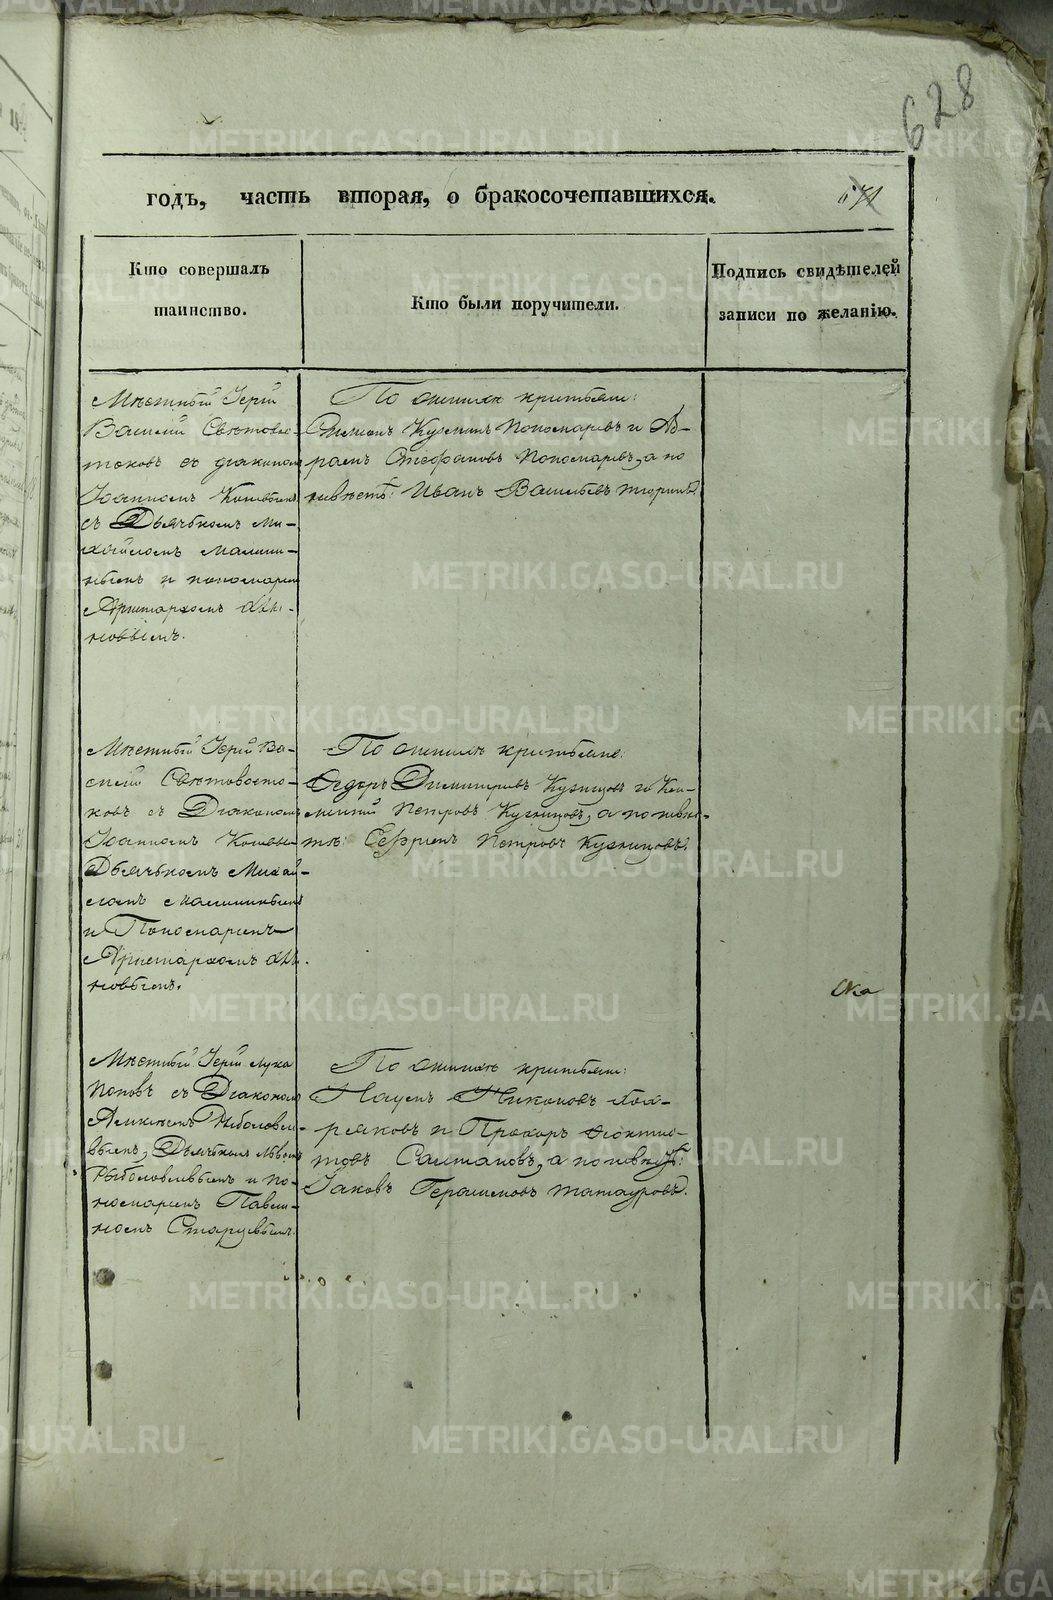 628
годъ, часть вторая, о бракосочетавшихся.
671
Кто совершалъ
таинство.
Кто были поручители.
Подпись свидѣтелей
записи по желанію.
Мѣстный Іерій
Василій Свѣтовос-
токовъ съ діакономъ
Іоанномъ
съ Дьячкомъ Ми-
хайломъ Малини-
нымъ и пономаремъ
Аристархомъ
новымъ.
По женихѣ крестьяне:
Симеонъ Кузминъ Пономаревъ и Ав-
раамъ Стефановъ Пономаревъ, а по
невѣстѣ: Иванъ Васильевъ
Мѣстный Іерій Ва-
силій Свѣтовосто-
ковъ съ Діакономъ
Іоанномъ
Дьячкомъ Михай-
ломъ Малининымъ
и Пономаремъ
Аристархомъ
новымъ.
По женихѣ крестьяне:
Ѳедоръ Димитріевъ Кузнецовъ и Кли-
ментій Петровъ Кузнецовъ, а по невѣс-
тѣ: Сергій Петровъ Кузнецовъ.
Мѣстный Іерій Лука
Поповъ съ Діакономъ
Рыболовле-
вымъ, Дьячкомъ Львомъ
Рыболовлевымъ и по-
номаремъ Павли-
номъ Старцевымъ.
По женихѣ крестьяне:
Наумъ Никоновъ Хом-
ряковъ и Прохоръ Ѳеоктис-
товъ Салтановъ, а по невѣстѣ:
Іаковъ Герасимовъ Татауровъ.
METRIKI.GASO-URAL.RU